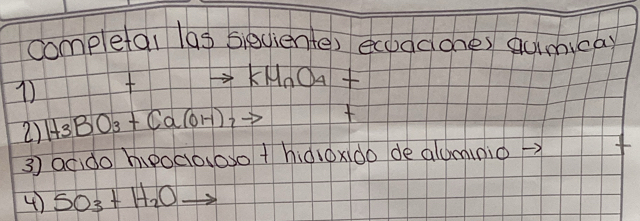 completar las siguientes ecuaciones quimicas
1) + → KMnO4 +
2) H3BO3 + Ca(OH)2 → +
3) acido hipocloroso + hidroxido de aluminio → +
4) SO3 + H2O →